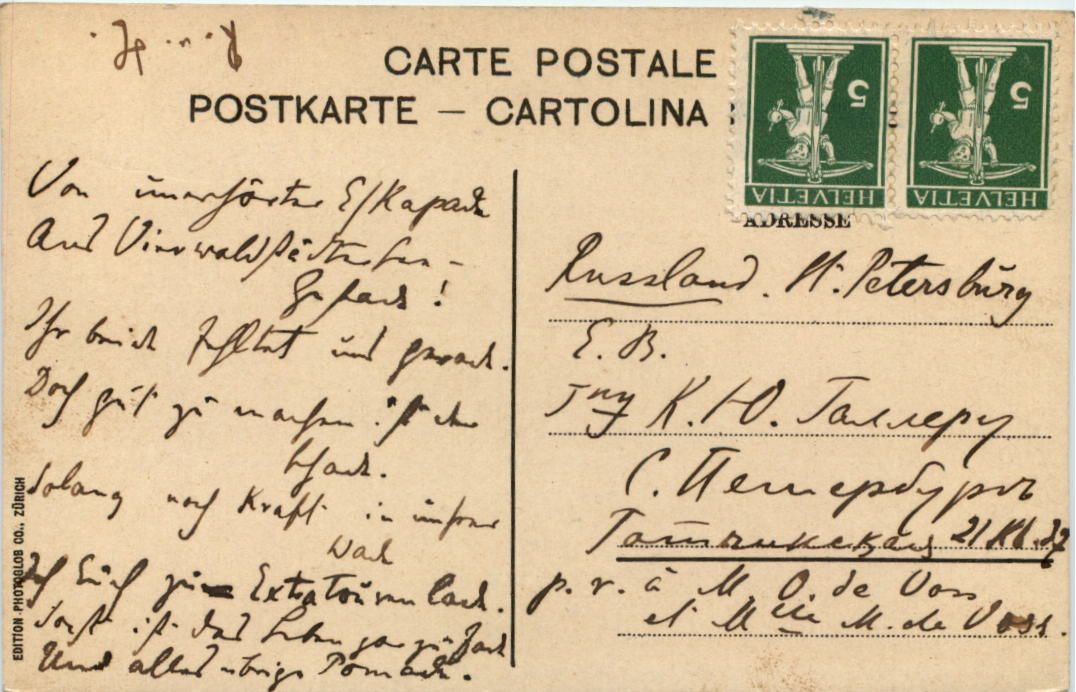 CARTE POSTALE
POSTKARTE — CARTOLINA
5
5
HELVETIA
HELVETIA
ADRESSE
Von unerhörter Eskapade
Aus Vierwaldstädtersee-
Gestade!
Ihr beide fehltet und gerade.
Doch gut zu machen ist der
Schade.
Solang noch Kraft in unsrer
Wade
Ich Euch zu Extratouren lade.
Sonst ist das Leben gar zu fade
Und alles übrige Pomade.
Russland. St. Petersbürg
E. B.
Гну К. Ю. Галлеру
С. Петербургъ
Гатчинская 21 Кв. 37
p. r. à M. O. de Voss
et Mlle M. de Voss.
EDITION PHOTOGLOB CO., ZÜRICH